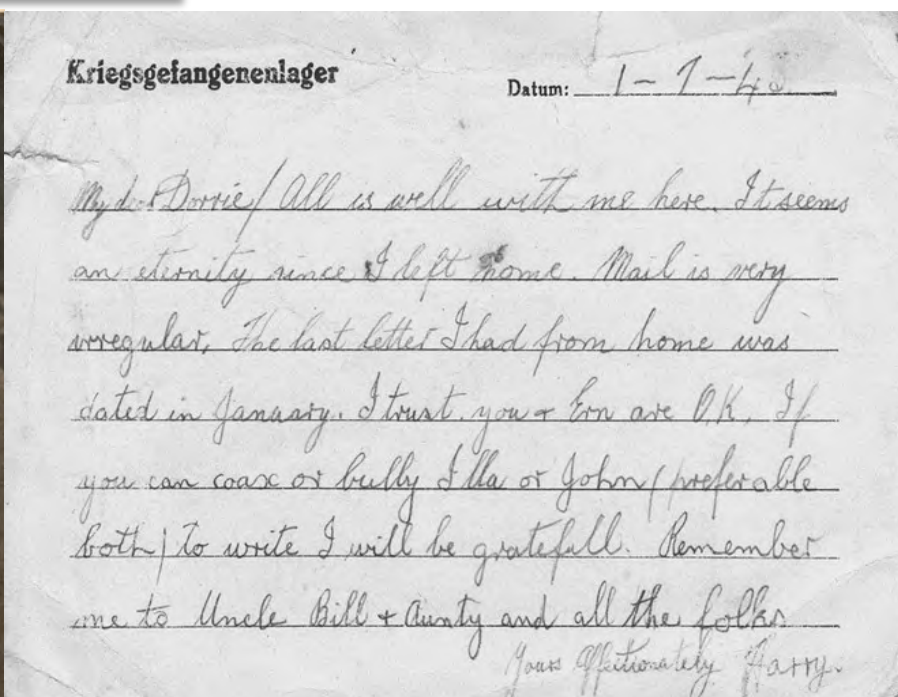 Kriegsgefangenenlager
Datum: 1-7-40
My dear Dorrie / All is well with me here. It seems
an eternity since I left home. Mail is very
irregular. The last letter I had from home was
dated in January. I trust you + Ern are O.K. If
you can coax or bully Illa or John (preferable
both) to write I will be gratefull. Remember
me to Uncle Bill + Aunty and all the folks
Yours Affectionately Harry.